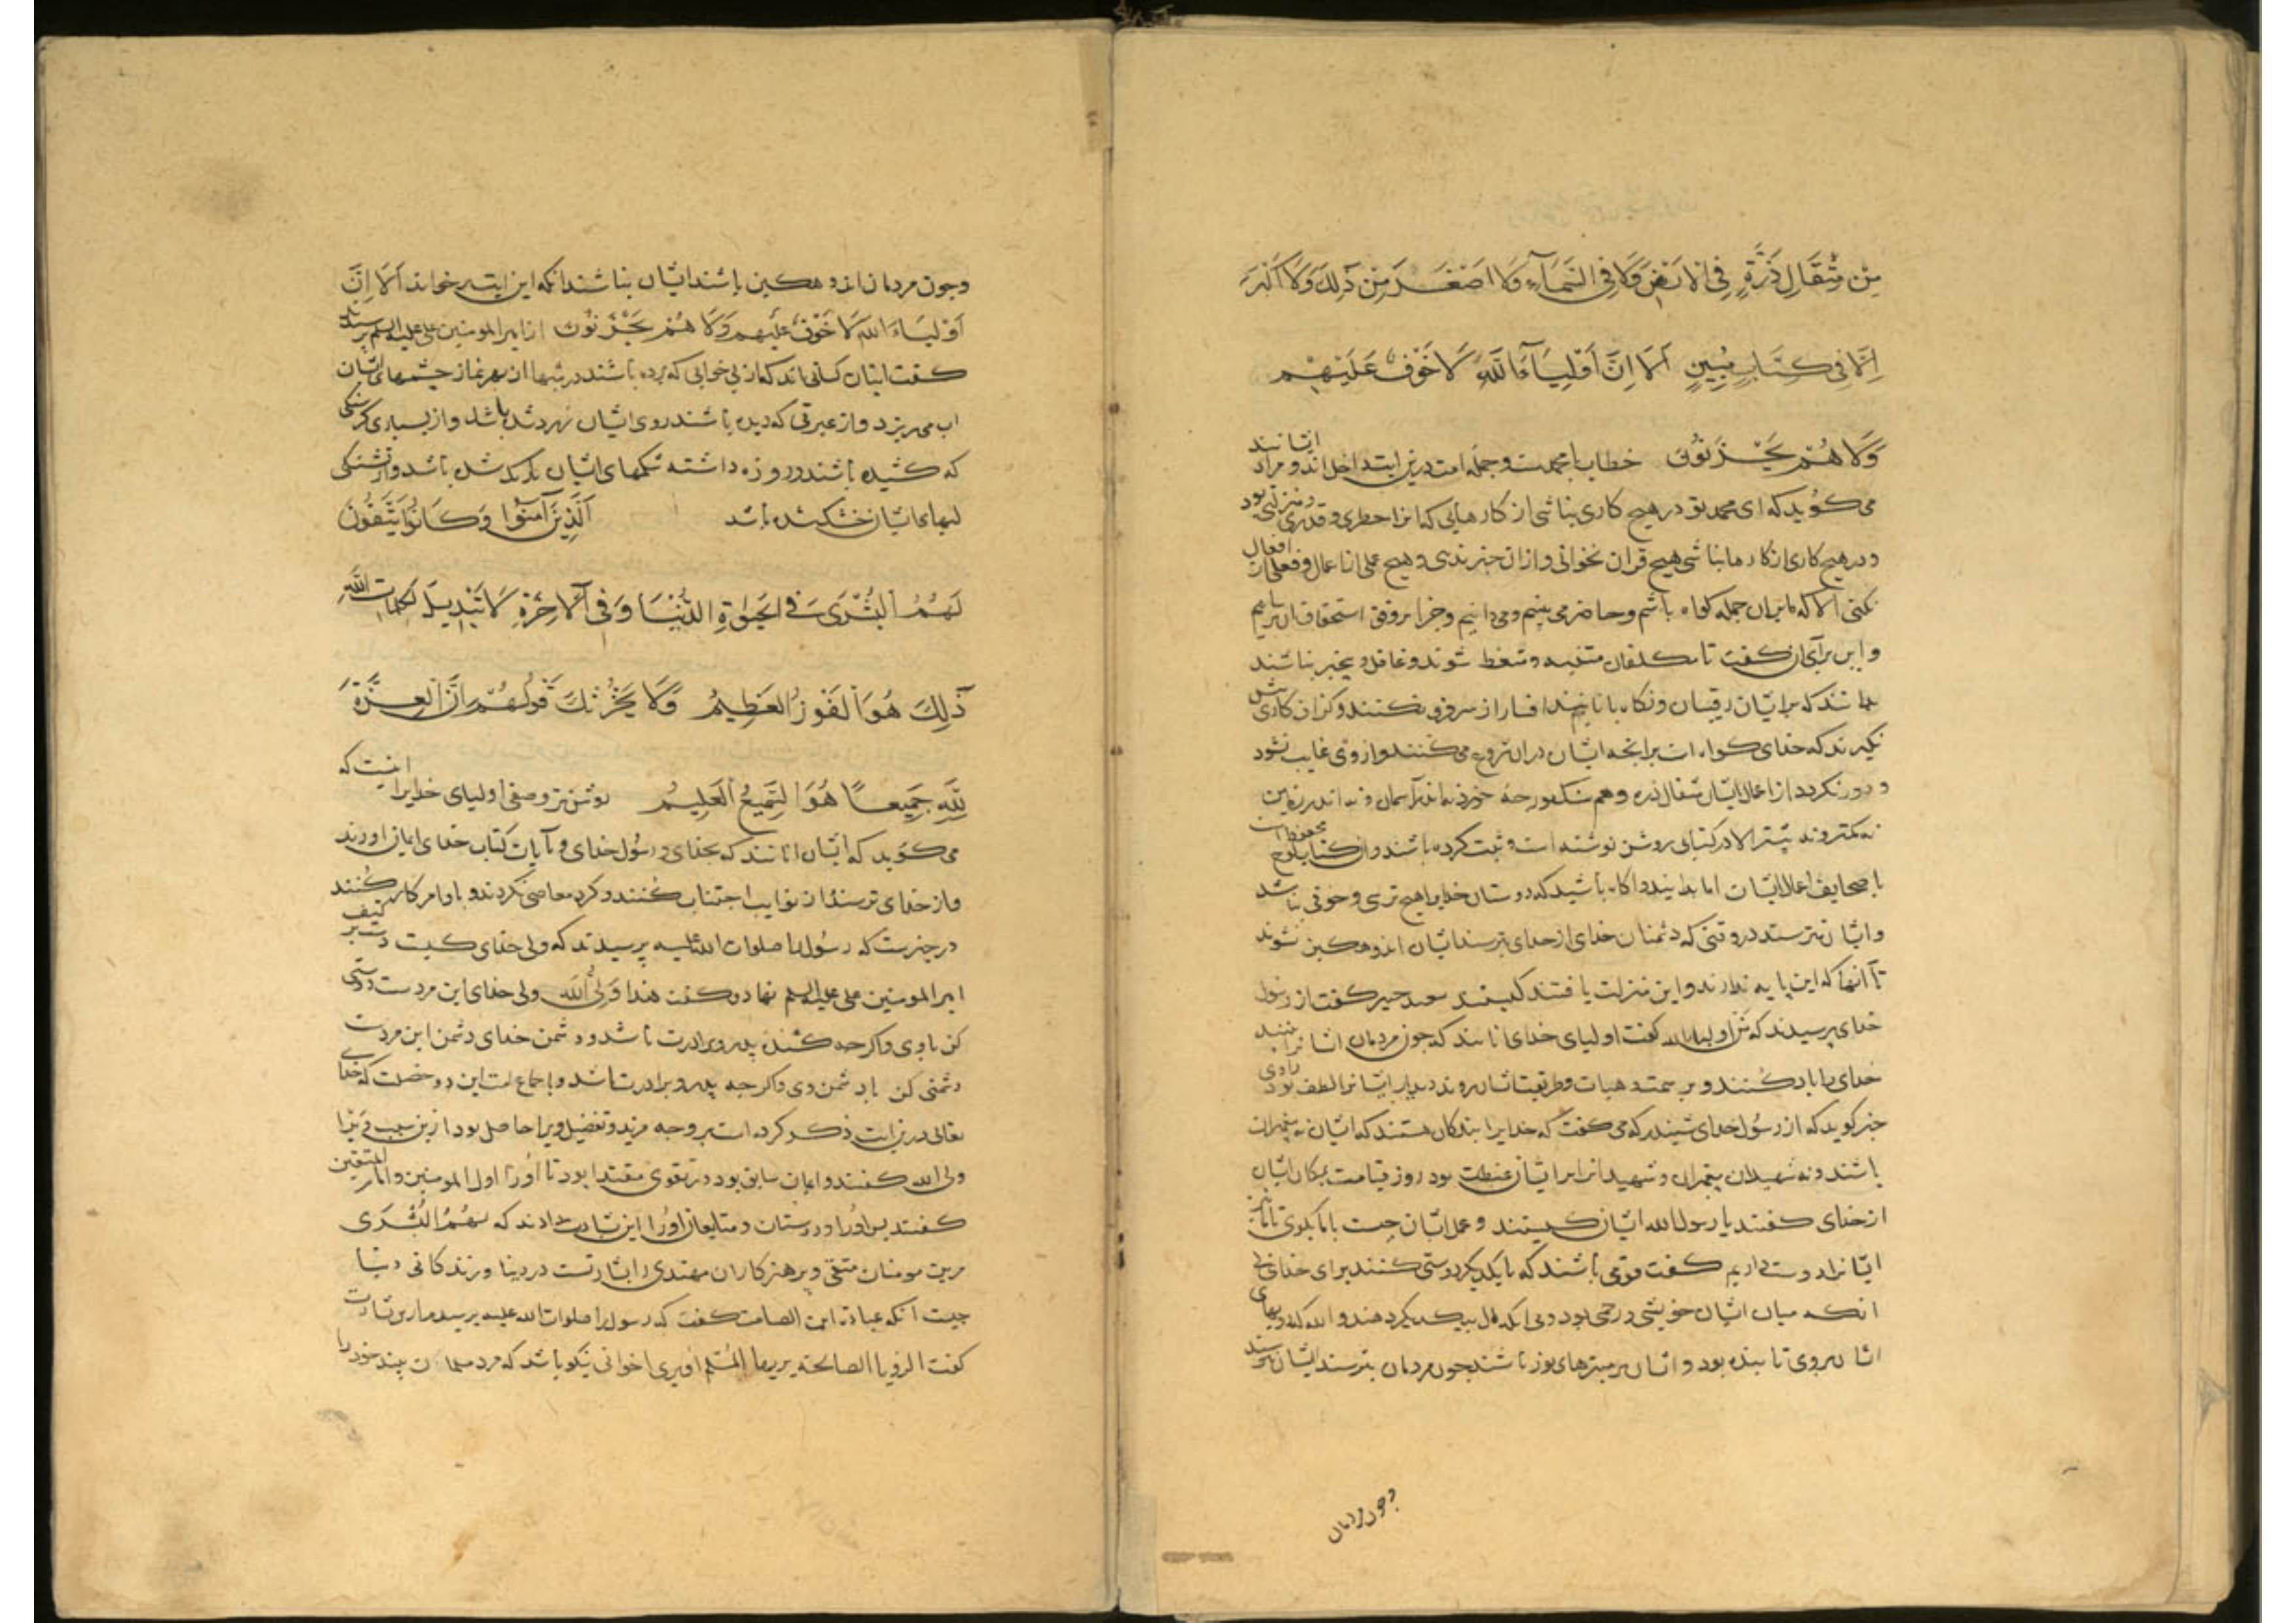 مِن مِّثْقَالِ ذَرَّةٍ فِي الْاَرْضِ وَلَا فِي السَّمَآءِ وَلَا اَصْغَرَ مِنْ ذٰلِكَ وَلَا اَكْبَرَ
اِلَّا فِي كِتَابٍ مُبِينٍ اَلَا اِنَّ اَوْلِيَآءَ اللَّهِ لَا خَوْفٌ عَلَيْهِمْ
وَلَا هُمْ يَحْزَنُونَ خطاب با محمدست و جمله امت درین ایت داخل اند و مراد ایشانند
می کوید که ای محمد تو در هیچ کاری نباشی از کارهایی که انرا خطری و قدری و منزلتی بود
و در هیچ کاری از کارها نباشی هیچ قران نخوانی و ازان خبر ندهی و هیچ عملی از اعمال و فعلی از افعال
نکنی الا که ما بران جمله کواه باشیم و حاضر می بینیم و می دانیم و جزا بر وفق استحقاق ان برسانیم
و این برای ان کفت تا مکلفان متنبه و متعظ شوند و غافل و بیخبر نباشند
بدانند که بر ایشان رقیبان و نکاه بانانیم
نکیرند که خدای کواه است برانچه ایشان دران شروع می کنند و از وی غایب نشود
و دور نکردد از اعمال ایشان مثقال ذره و هم سنک مورچه خورد نه اندر آسمان و نه اندر زمین
نه کمتر و نه بیشتر الا در کتابی روشن نوشته است و ثبت کرده باشند و ان کتاب لوح محفوظ است
با صحایف اعمال ایشان اما بدانید و اکاه باشید که دوستان خدایرا هیچ ترسی و خوفی نباشد
و ایشان نترسند در وقتی که دشمنان خدای از خدای بترسند ایشان اندوهکین نشوند
تا آنها که این پایه ندارند و این منزلت یافتند کیستند سعید جبیر کفت از رسول
خدای پرسیدند که من اولیاء الله کفت اولیای خدای انانند که چون مردمان ایشانرا بینند
خدای را یاد کنند و بر سمت و هیات و طریقت ایشان روند دیدار ایشانرا لطف بود راوی
خبر کوید که از رسول خدای شنیدم که می کفت که خدایرا بندکان هستند که ایشان نه پیغمبران
باشند و نه شهیدان پیغمبران و شهیدانرا بر ایشان غبطت بود روز قیامت بمکان ایشان
از خدای کفتند یا رسول الله ایشان کیستند و عمل ایشان چیست با ما بکوی تا ما نیز
ایشانرا دوست داریم کفت قومی باشند که با یکدیکر دوستی کنند برای خدای بی
انکه میان ایشان خویشی و رحمی بود و بی انکه مال بیکدیکر دهند و الله که رویهای
ایشان بروی تابنده بود و ایشان بر منبرهای نور باشند چون مردمان بترسند ایشان نترسند
و چون مردمان
و چون مردمان اندوهکین باشند ایشان نباشند انکه این ایت بر خواند اَلَا اِنَّ
اَوْلِيَاءَ اللَّهِ لَا خَوْفٌ عَلَيْهِمْ وَلَا هُمْ يَحْزَنُونَ از امیر المومنین علی علیه السلم پرسیدند
کفت ایشان کسانی اند که از بی خوابی که برده باشند در شبها از بهر نماز چشمهای ایشان
اب می ریزد و از عبرتی که دیده باشند روی ایشان زرد شده باشد و از بسیاری کرسنکی
که کشیده باشند و روزه داشته شکمهای ایشان باریک شده باشد و از تشنکی
لبهای ایشان خشک شده باشد اَلَّذِينَ آمَنُوا وَكَانُوا يَتَّقُونَ
لَهُمُ الْبُشْرَى فِي الْحَيٰوةِ الدُّنْيَا وَفِي الْآخِرَةِ لَا تَبْدِيلَ لِكَلِمَاتِ اللَّهِ
ذٰلِكَ هُوَ الْفَوْزُ الْعَظِيمُ وَلَا يَحْزُنْكَ قَوْلُهُمْ اِنَّ الْعِزَّةَ
لِلَّهِ جَمِيعًا هُوَ السَّمِيعُ الْعَلِيمُ روشن تر وصفی اولیای خدایرا اینست که
می کوید که ایشان انانند که بخدای و رسول خدای و آیات کتاب خدای ایمان اوردند
و از خدای ترسند و از نوایب اجتناب کنند و کرد معاصی نکردند و باوامر کار کنند
در خبرست که رسول را صلوات الله علیه پرسیدند که ولی خدای کیست دست بر کتف
امیر المومنین علی علیه السلم نهاد و کفت هذا وَلِيُّ اللّٰه ولی خدای این مردست دوستی
کن با وی و اکرچه کشنده پدر و برادرت باشد و دشمن خدای دشمن این مردست
دشمنی کن با دشمن وی و اکرچه پدر و برادرت باشد و باجماع امت این دو خصلت که خدای
تعالی درین ایت ذکر کرده است بر وجه مزید و تفضیل ویرا حاصل بود ازین سبب ویرا
ولی الله کفتند و ایمان سابق بود در تقوی مقتدا بود تا اورا اول المومنین و امام المتقین
کفتند پس اورا و دوستان و متابعان اورا این بشارت دادند که لَهُمُ الْبُشْرَى
مرین مومنان متقی و پرهیزکاران مهتدی را بشارتست در دنیا و زندکانی دنیا
چیست آنکه عبادة ابن الصامت کفت که رسول را صلوات الله علیه پرسیدم ازین بشارت
کفت الرؤیا الصالحة یریها المُسلم او یری خوابی نیکو باشد که مرد مسلمان بیند خود را